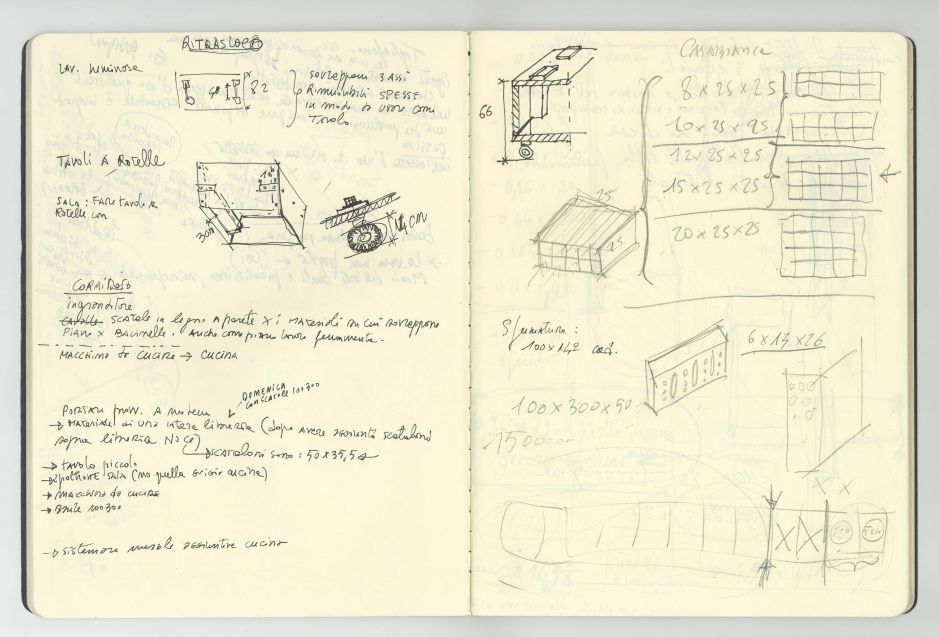 LAV. luminosa
82
sovrapporre 3 ASSI
Rimovibili SPESSE
in modo da usare come
Tavolo
TAVOLI A Rotelle
SALA : FARE TAVOLI A
Rotelle con
30
14 cm
CORRIDOIO
ingranditore
SCATOLE in legno A parete X i MATERIALI su cui sovrappone
PIANI X BACINELLE. Anche come piano lavoro fermamente.
MACCHINA da cucire → CUCINA
DOMENICA
con SCATOLE 100300
PORTARE A modena
→ MATERIALE di una intera libreria (dopo avere aggiunto scatoloni
sopra libreria
→ SCATOLONI sono : 50 X 35,5
→ TAVOLO piccolo
→ poltrone SALA (no quella grigia cucina)
→ MACCHINA da cucire
→ 100300
→ Sistemare aggiuntive cucina
66
8 x 25 x 25
10 x 25 x 25
12 x 25 x 25
15 x 25 x 25
20 x 25 x 25
25
25
100 x 142
6 x 13 x 26
100 x 300 x 50
X X
X X